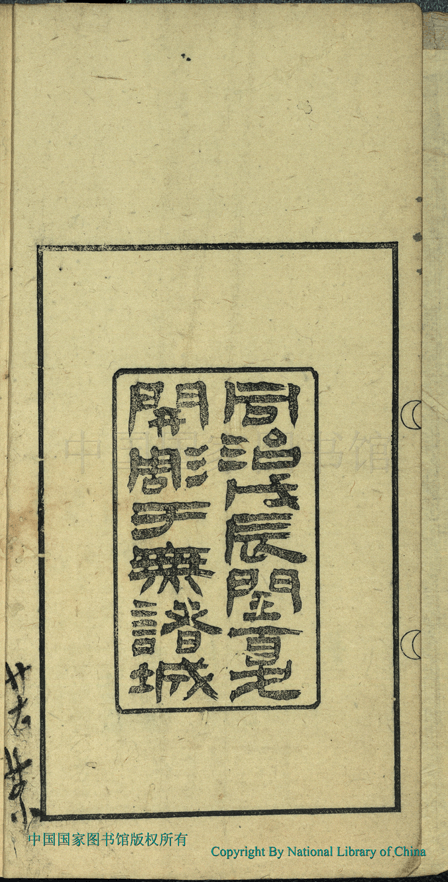 同治戊辰閏夏
開彫于無諸城
中国国家图书馆版权所有
Copyright By National Library of China